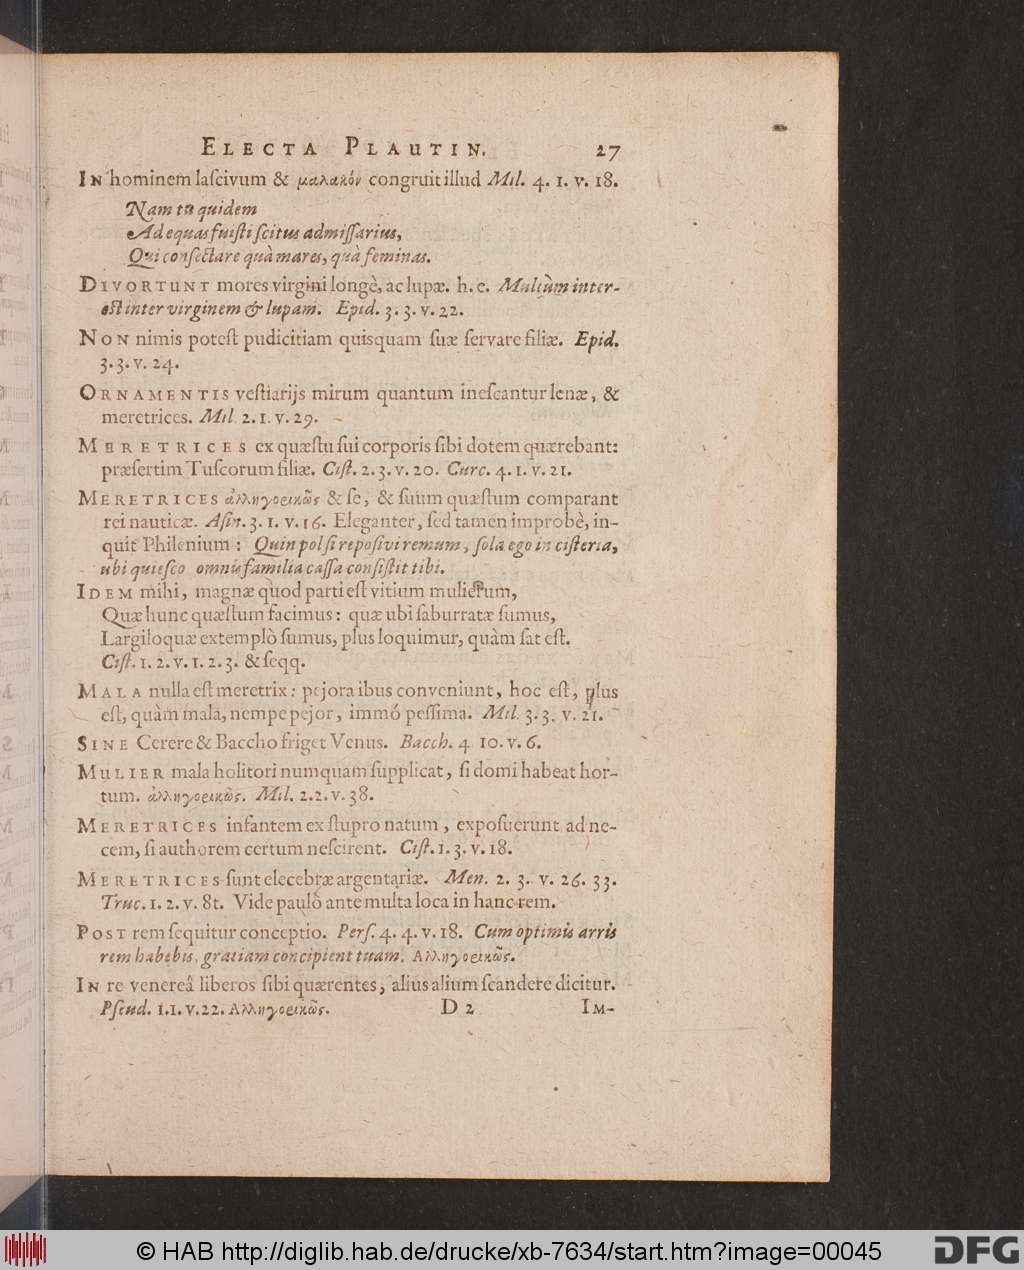 ELECTA PLAUTIN. 27
IN hominem laſcivum & μαλακόν congruit illud Mil. 4. 1. v. 18.
Nam tu quidem
Ad equas fuiſti ſcitus admiſſarius,
Qui conſectare quà mares, quà feminas.
DIVORTUNT mores virgini longè, ac lupæ. h. e. Multùm inter-
eſt inter virginem & lupam. Epid. 3. 3. v. 22.
NON nimis poteſt pudicitiam quisquam ſuæ ſervare filiæ. Epid.
3. 3. v. 24.
ORNAMENTIS veſtiarijs mirum quantum ineſcantur lenæ, &
meretrices. Mil. 2. 1. v. 29.
MERETRICES ex quæſtu ſui corporis ſibi dotem quærebant:
præſertim Tuſcorum filiæ. Ciſt. 2. 3. v. 20. Curc. 4. 1. v. 21.
MERETRICES ἀλληγορικῶς & ſe, & ſuum quæſtum comparant
rei nauticæ. Aſin. 3. 1. v. 16. Eleganter, ſed tamen improbè, in-
quit Philenium: Quin pol ſi repoſivi remum, ſola ego in ciſteria,
ubi quieſco omnis familia caſſa conſiſtit tibi.
IDEM mihi, magnæ quòd parti eſt vitium mulierum,
Quæ hunc quæſtum facimus: quæ ubi ſaburratæ ſumus,
Largiloquæ extemplò ſumus, plus loquimur, quàm ſat eſt.
Ciſt. 1. 2. v. 1. 2. 3. & ſeqq.
MALA nulla eſt meretrix: pejora ibus conveniunt, hoc eſt, plus
eſt, quàm mala, nempe pejor, immó peſſima. Mil. 3. 3. v. 21.
SINE Cerere & Baccho friget Venus. Bacch. 4 10. v. 6.
MULIER mala holitori numquam ſupplicat, ſi domi habeat hor-
tum. ἀλληγορικῶς. Mil. 2. 2. v. 38.
MERETRICES infantem ex ſtupro natum, expoſuerunt ad ne-
cem, ſi authorem certum neſcirent. Ciſt. 1. 3. v. 18.
MERETRICES ſunt elecebræ argentariæ. Men. 2. 3. v. 26. 33.
Truc. 1. 2. v. 8t. Vide paulò ante multa loca in hanc rem.
POST rem ſequitur conceptio. Perſ. 4. 4. v. 18. Cum optimis arris
rem habebis, gratiam concipient tuam. Αλληγορικῶς.
IN re venereâ liberos ſibi quærentes, alius alium ſcandere dicitur.
Pſeud. 1. 1. v. 22. Αλληγορικῶς. D 2 IM-
© HAB http://diglib.hab.de/drucke/xb-7634/start.htm?image=00045
DFG